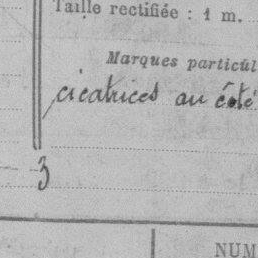 Taille rectifiée : 1 m.
Marques particul
cicatrices au côté
3
NUM